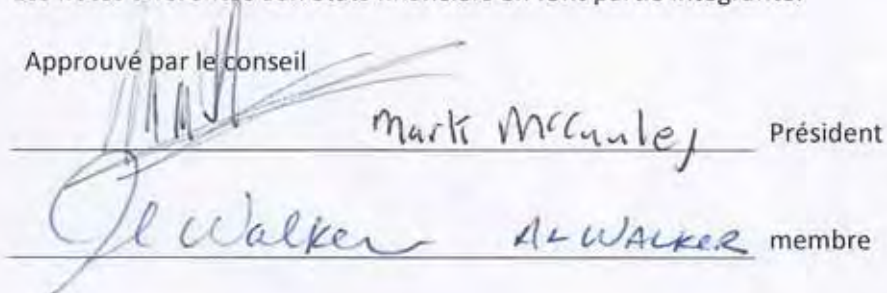 Approuvé par le conseil
Mark McCauley Président
Al Walker AL WALKER membre